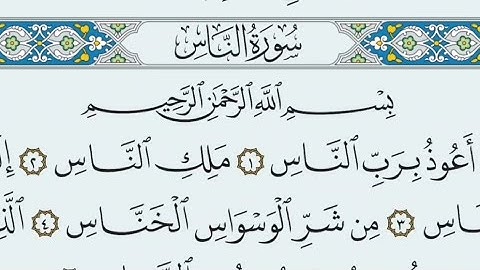 سُورَةُ النَّاسِ
بِسْمِ ٱللَّهِ ٱلرَّحْمَٰنِ ٱلرَّحِيمِ
أَعُوذُ بِرَبِّ ٱلنَّاسِ ١ مَلِكِ ٱلنَّاسِ ٢
٣ مِن شَرِّ ٱلْوَسْوَاسِ ٱلْخَنَّاسِ ٤